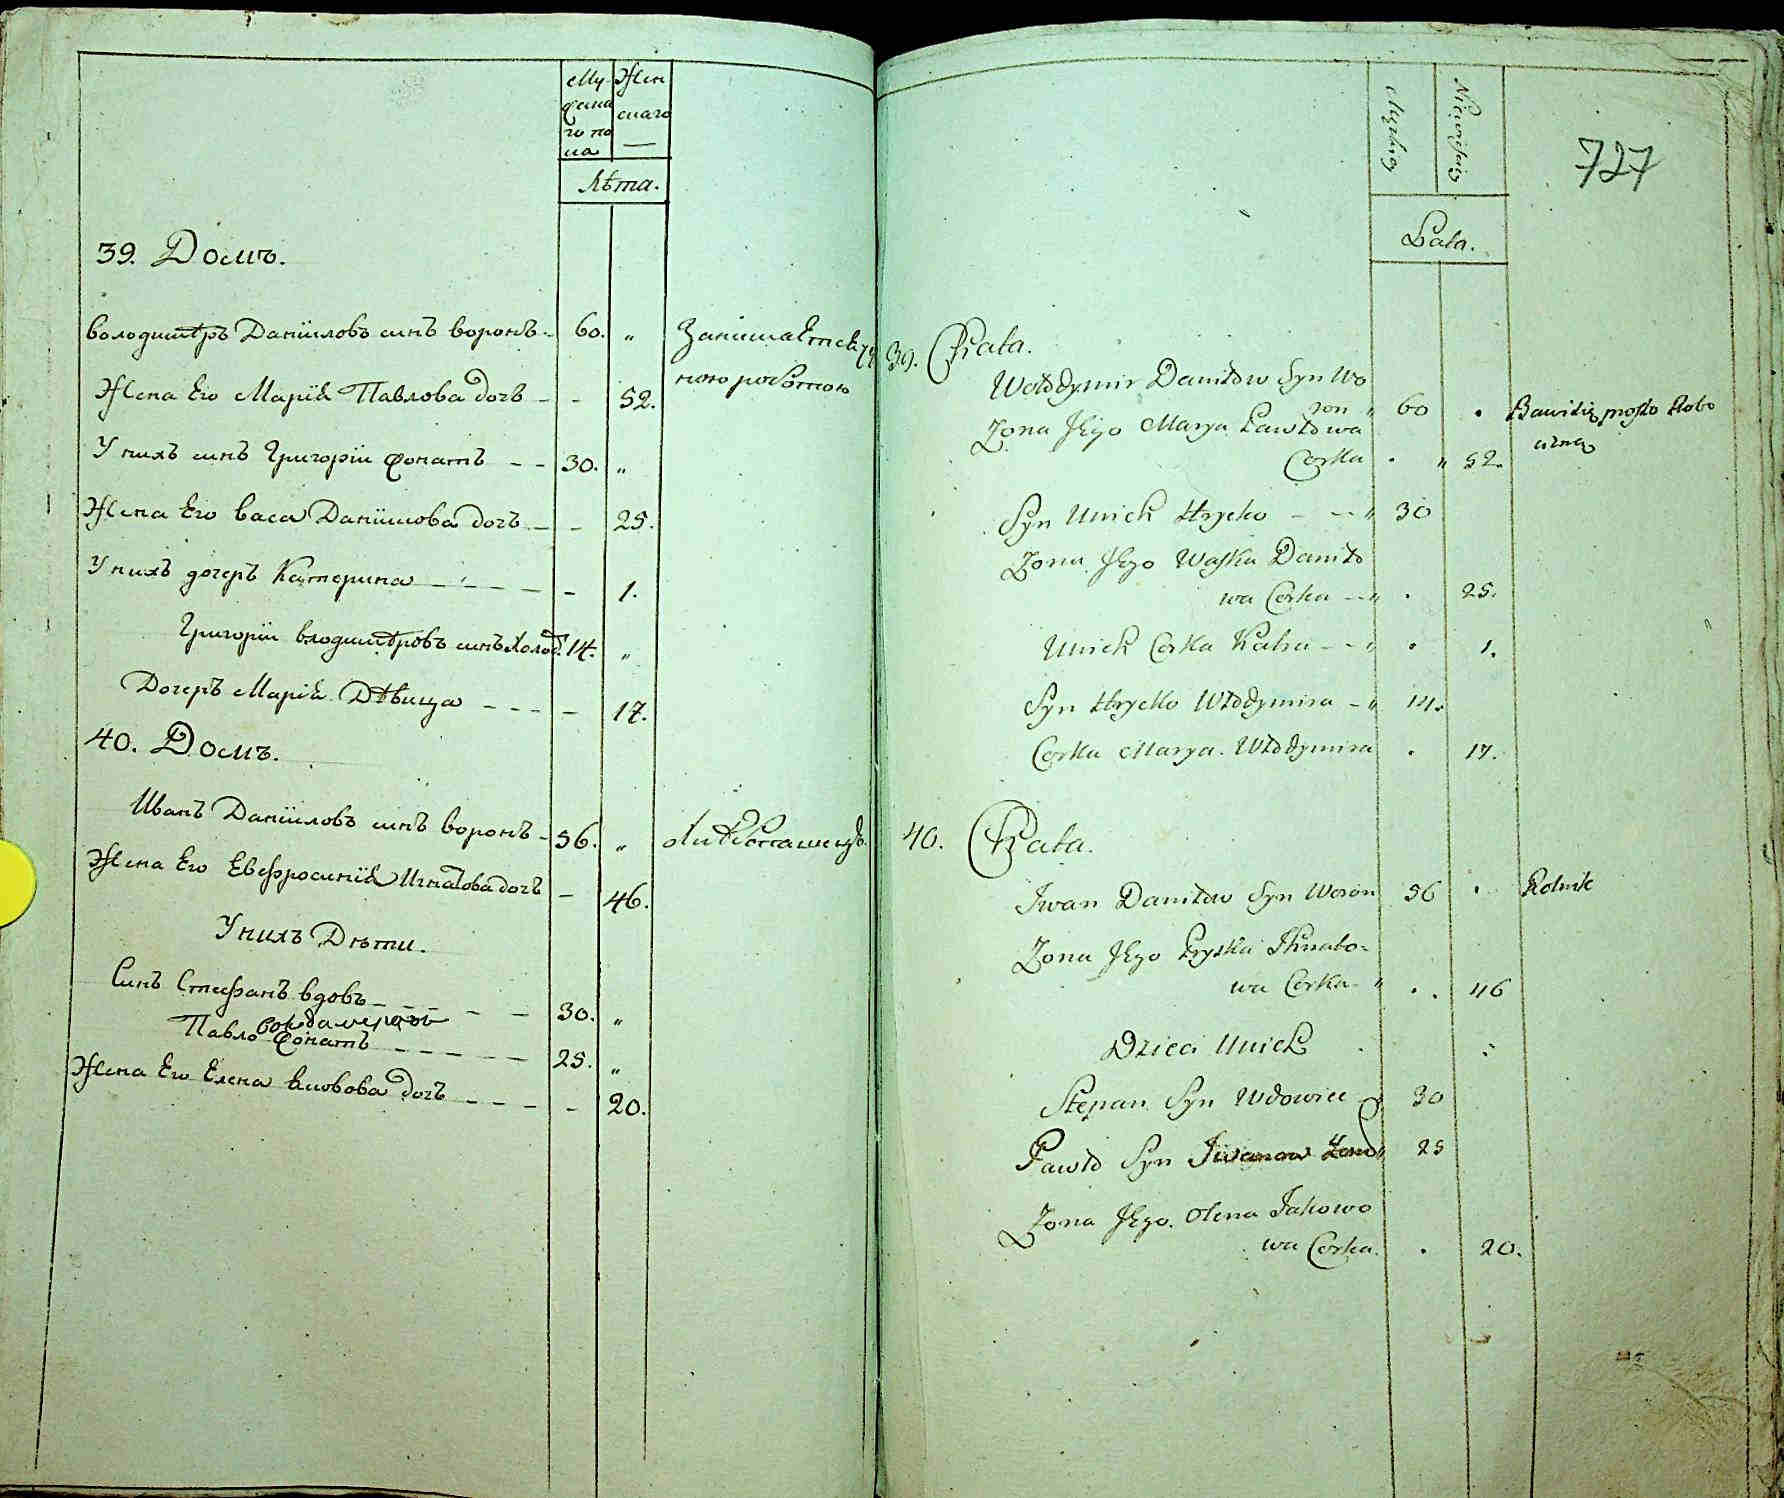 Му-
жска
го по
ла
Жен
скаго
Лѣта.
39. Домъ.
Володимѣръ Даніиловъ синъ воронъ 60. „
Жена Его Марія Павлова дочъ - - 52.
У нихъ синъ Григорій жонатъ - - 30. „
Жена Его васса Даніилова дочъ - - 25.
У нихъ дочеръ Катерина - - - - 1.
Григорій владимѣровъ синъ холос. 14. „
Дочеръ Марія Дѣвица - - - - 17.
40. Домъ.
Иванъ Даніиловъ синъ воронъ - 56. „
Жена Его Евфросинія Игнатова дочъ - 46.
У нихъ Дѣти.
Синъ Стефанъ вдовъ - - - - 30. „
Павло жонатъ - - - - 25. „
Жена Его Елена дочъ - - - - 20.
727
Męskiey
Niewiesciey
Lata.
39. Chata.
Wołodymir Daniłow Syn Wo
ron „ 60 .
Bawi się prosto Robo
cizną
Zona Jego Marya Pawłowa
Corka . „ 52.
Syn Unich Hrycko - - „ 30
Zona Jego Waska Daniło
wa Corka - „ . 25.
Unich Corka Katra - - „ . 1.
Syn Hrycko Włodymira - „ 14.
Corka Marya Włodymira . 17.
40. Chata.
Iwan Daniłow Syn Woron 56 . Rolnik
Zona Jego Pryska Ihnato-
wa Corka - „ . . 46
Dzieci Unich
Stepan Syn Wdowiec - „ 30
Pawło Syn Iwanow „ 25
Zona Jego Olena Jakowo
wa Corka. . 20.